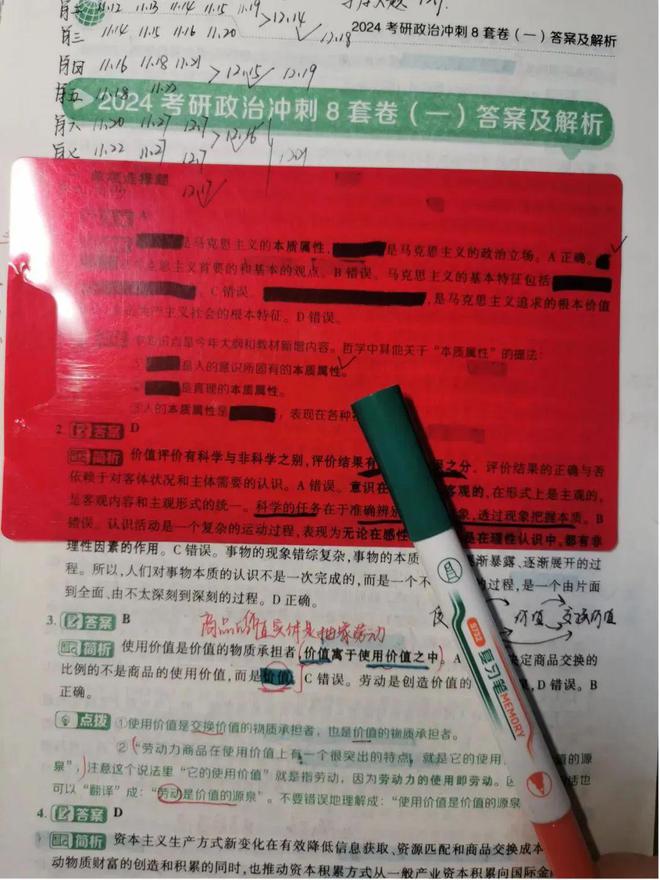 肖二 11.12 11.13 11.14 11.15 11.19 > 12.14
肖三 11.14 11.15 11.16 11.20 12.18
2024 考研政治冲刺 8 套卷（一）答案及解析
肖四 11.16 11.18 11.21 > 12.15 12.19
肖五 11.18 11.22
2024 考研政治冲刺 8 套卷（一）答案及解析
肖六 11.20 11.27 12.7 > 12.16
肖七 11.22 11.27 12.7
单项选择题 12.17
A
是马克思主义的本质属性， 是马克思主义的政治立场。A 正确。
主义首要的和基本的观点。B 错误。马克思主义的基本特征包括
。C 错误。 ，是马克思主义追求的根本价值
主义社会的根本特征。D 错误。
点是今年大纲和教材新增内容。哲学中其他关于“本质属性”的提法：
是人的意识所固有的本质属性。
是真理的本质属性。
③人的本质属性是 ，表现在各种
2. 答案 D
简析 价值评价有科学与非科学之别，评价结果有 之分。评价结果的正确与否
依赖于对客体状况和主体需要的认识。A 错误。意识在 客观的，在形式上是主观的，
是客观内容和主观形式的统一。科学的任务在于准确辨别 象，透过现象把握本质。B
错误。认识活动是一个复杂的运动过程，表现为无论在感性 是在理性认识中，都有非
理性因素的作用。C 错误。事物的现象错综复杂，事物的本质 渐暴露、逐渐展开的过
程。所以，人们对事物本质的认识不是一次完成的，而是一个不 的过程，是一个由片面
到全面、由不太深刻到深刻的过程。D 正确。
价值 交换价值
3. 答案 B 商品的价值实体是抽象劳动
简析 使用价值是价值的物质承担者，价值寓于使用价值之中。A 决定商品交换的
比例的不是商品的使用价值，而是价值。C 错误。劳动是创造价值的 ，D 错误。B
正确。
点拨 ①使用价值是交换价值的物质承担者，也是价值的物质承担者。
②“劳动力商品在使用价值上有一个很突出的特点，就是它的使用 值的源
泉”，注意这个说法里“它的使用价值”就是指劳动，因为劳动力的使用即劳动。 话也
可以“翻译”成：“劳动是价值的源泉”。不要错误地理解成：“使用价值是价值的源泉
复习笔 MEMORY
4. 答案 D
简析 资本主义生产方式新变化在有效降低信息获取、资源匹配和商品交换成本
动物质财富的创造和积累的同时，也推动资本积累方式从一般产业资本积累向国际金